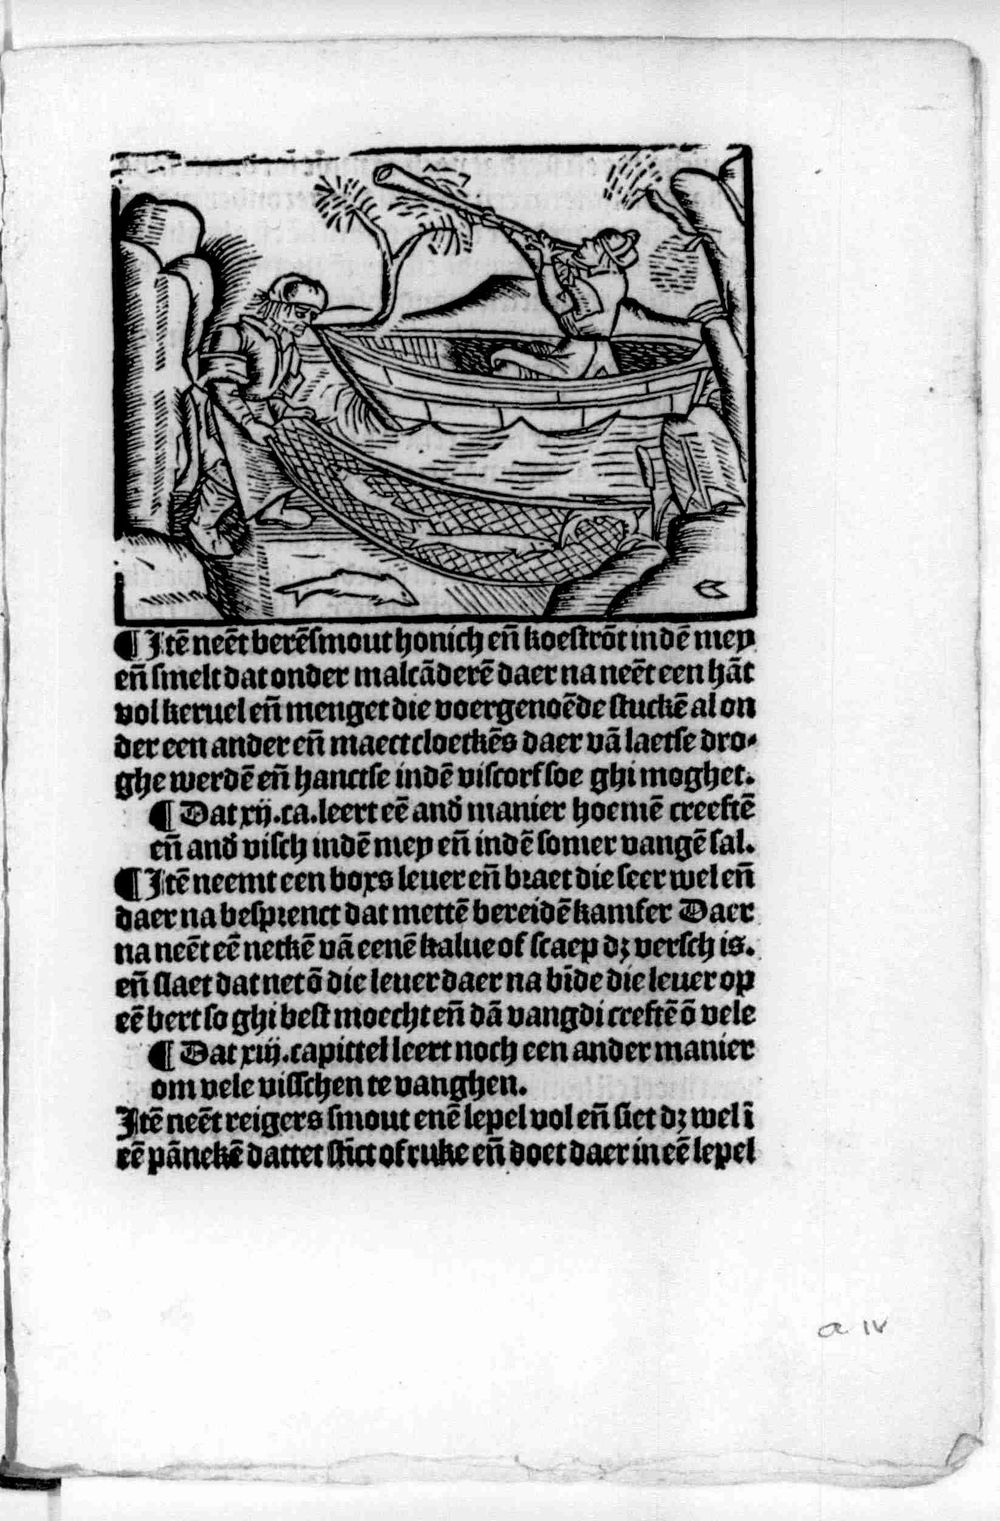 ¶ Itē neēt berēsmout honich eñ koestrōt indē mey
eñ smelt dat onder malcāderē daer na neēt een hāt
vol keruel eñ menget die voergenoēde stuckē al on
der een ander eñ maect cloetkēs daer vā laetse dro⸗
ghe werdē eñ hanctse indē viscorf soe ghi moghet.
¶ Dat xij. ca. leert eē andꝰ manier hoemē creeftē
eñ andꝰ visch indē mey eñ indē somer vangē sal.
¶ Itē neemt een boxs leuer eñ braet die seer wel eñ
daer na besprenct dat mettē bereidē kamfer Daer
na neēt eē netkē vā eenē kalue of scaep dꝫ versch is.
eñ slaet dat net ō die leuer daer na bīde die leuer op
eē bert so ghi best moecht eñ dā vangdi creeftē ō vele
¶ Dat xiij. capittel leert noch een ander manier
om vele visschen te vanghen.
Itē neēt reigers smout enē lepel vol eñ siet dꝫ wel ī
eē pānekē dattet stīct of ruke eñ doet daer in eē lepel
a iv